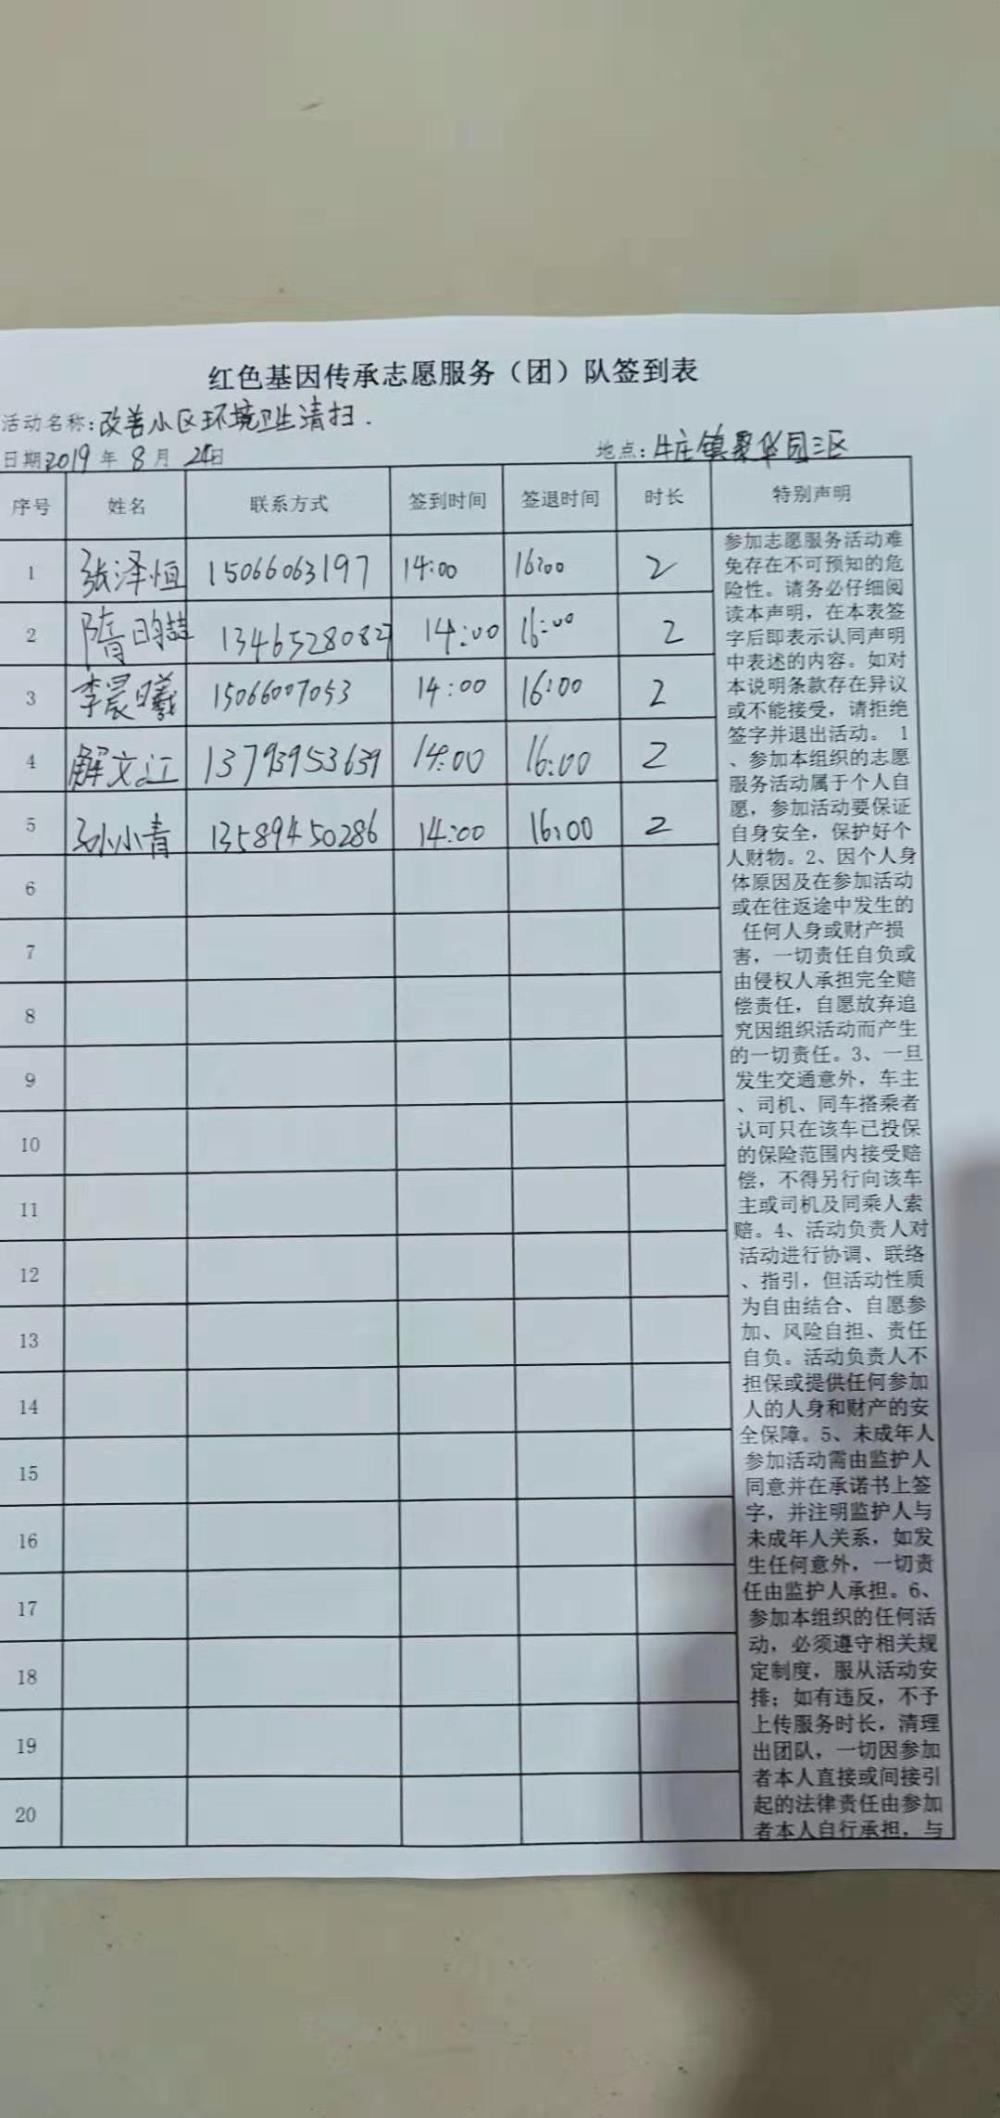 红色基因传承志愿服务（团）队签到表
活动名称：改善小区环境卫生清扫.
日期2019年8月24日 地点：牛庄镇聚华园三区
序号 姓名 联系方式 签到时间 签退时间 时长 特别声明
1 张泽恒 15066063197 14:00 16:00 2
2 隋昀喆 13465280827 14:00 16:00 2
3 李晨曦 15066007053 14:00 16:00 2
4 解文江 13793953639 14:00 16:00 2
5 孙小青 13589450286 14:00 16:00 2
6
7
8
9
10
11
12
13
14
15
16
17
18
19
20
参加志愿服务活动难
免存在不可预知的危
险性。请务必仔细阅
读本声明，在本表签
字后即表示认同声明
中表述的内容。如对
本说明条款存在异议
或不能接受，请拒绝
签字并退出活动。 1
、参加本组织的志愿
服务活动属于个人自
愿，参加活动要保证
自身安全，保护好个
人财物。2、因个人身
体原因及在参加活动
或在往返途中发生的
任何人身或财产损
害，一切责任自负或
由侵权人承担完全赔
偿责任，自愿放弃追
究因组织活动而产生
的一切责任。3、一旦
发生交通意外，车主
、司机、同车搭乘者
认可只在该车已投保
的保险范围内接受赔
偿，不得另行向该车
主或司机及同乘人索
赔。4、活动负责人对
活动进行协调、联络
、指引，但活动性质
为自由结合、自愿参
加、风险自担、责任
自负。活动负责人不
担保或提供任何参加
人的人身和财产的安
全保障。5、未成年人
参加活动需由监护人
同意并在承诺书上签
字，并注明监护人与
未成年人关系，如发
生任何意外，一切责
任由监护人承担。6、
参加本组织的任何活
动，必须遵守相关规
定制度，服从活动安
排；如有违反，不予
上传服务时长，清理
出团队，一切因参加
者本人直接或间接引
起的法律责任由参加
者本人自行承担，与